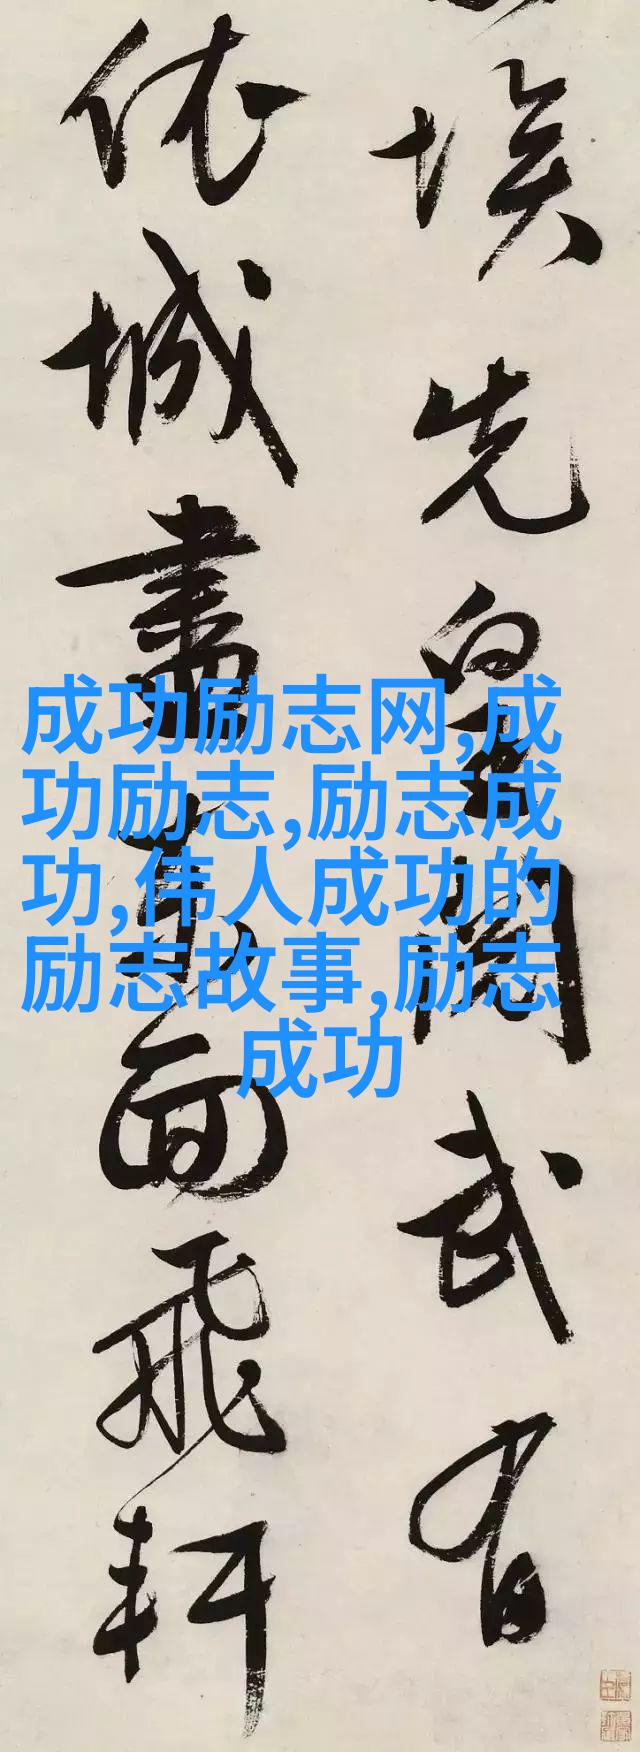 埃先皇閱武有
依城盡東面飛軒
成功励志网,成
功励志,励志成
功,伟人成功的
励志故事,励志
成功